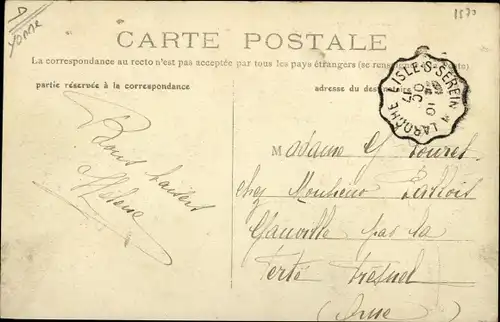 Yonne
1570
CARTE POSTALE
La correspondance au recto n'est pas acceptée par tous les pays étrangers (se rensei
partie réservée à la correspondance
adresse du destinataire
ISLE-S-SEREIN A LAROCHE
10
OC
17
Bons baisers
Hélène
Madame
chez Monsieur
par la
Ferté Fresnel
(Orne)